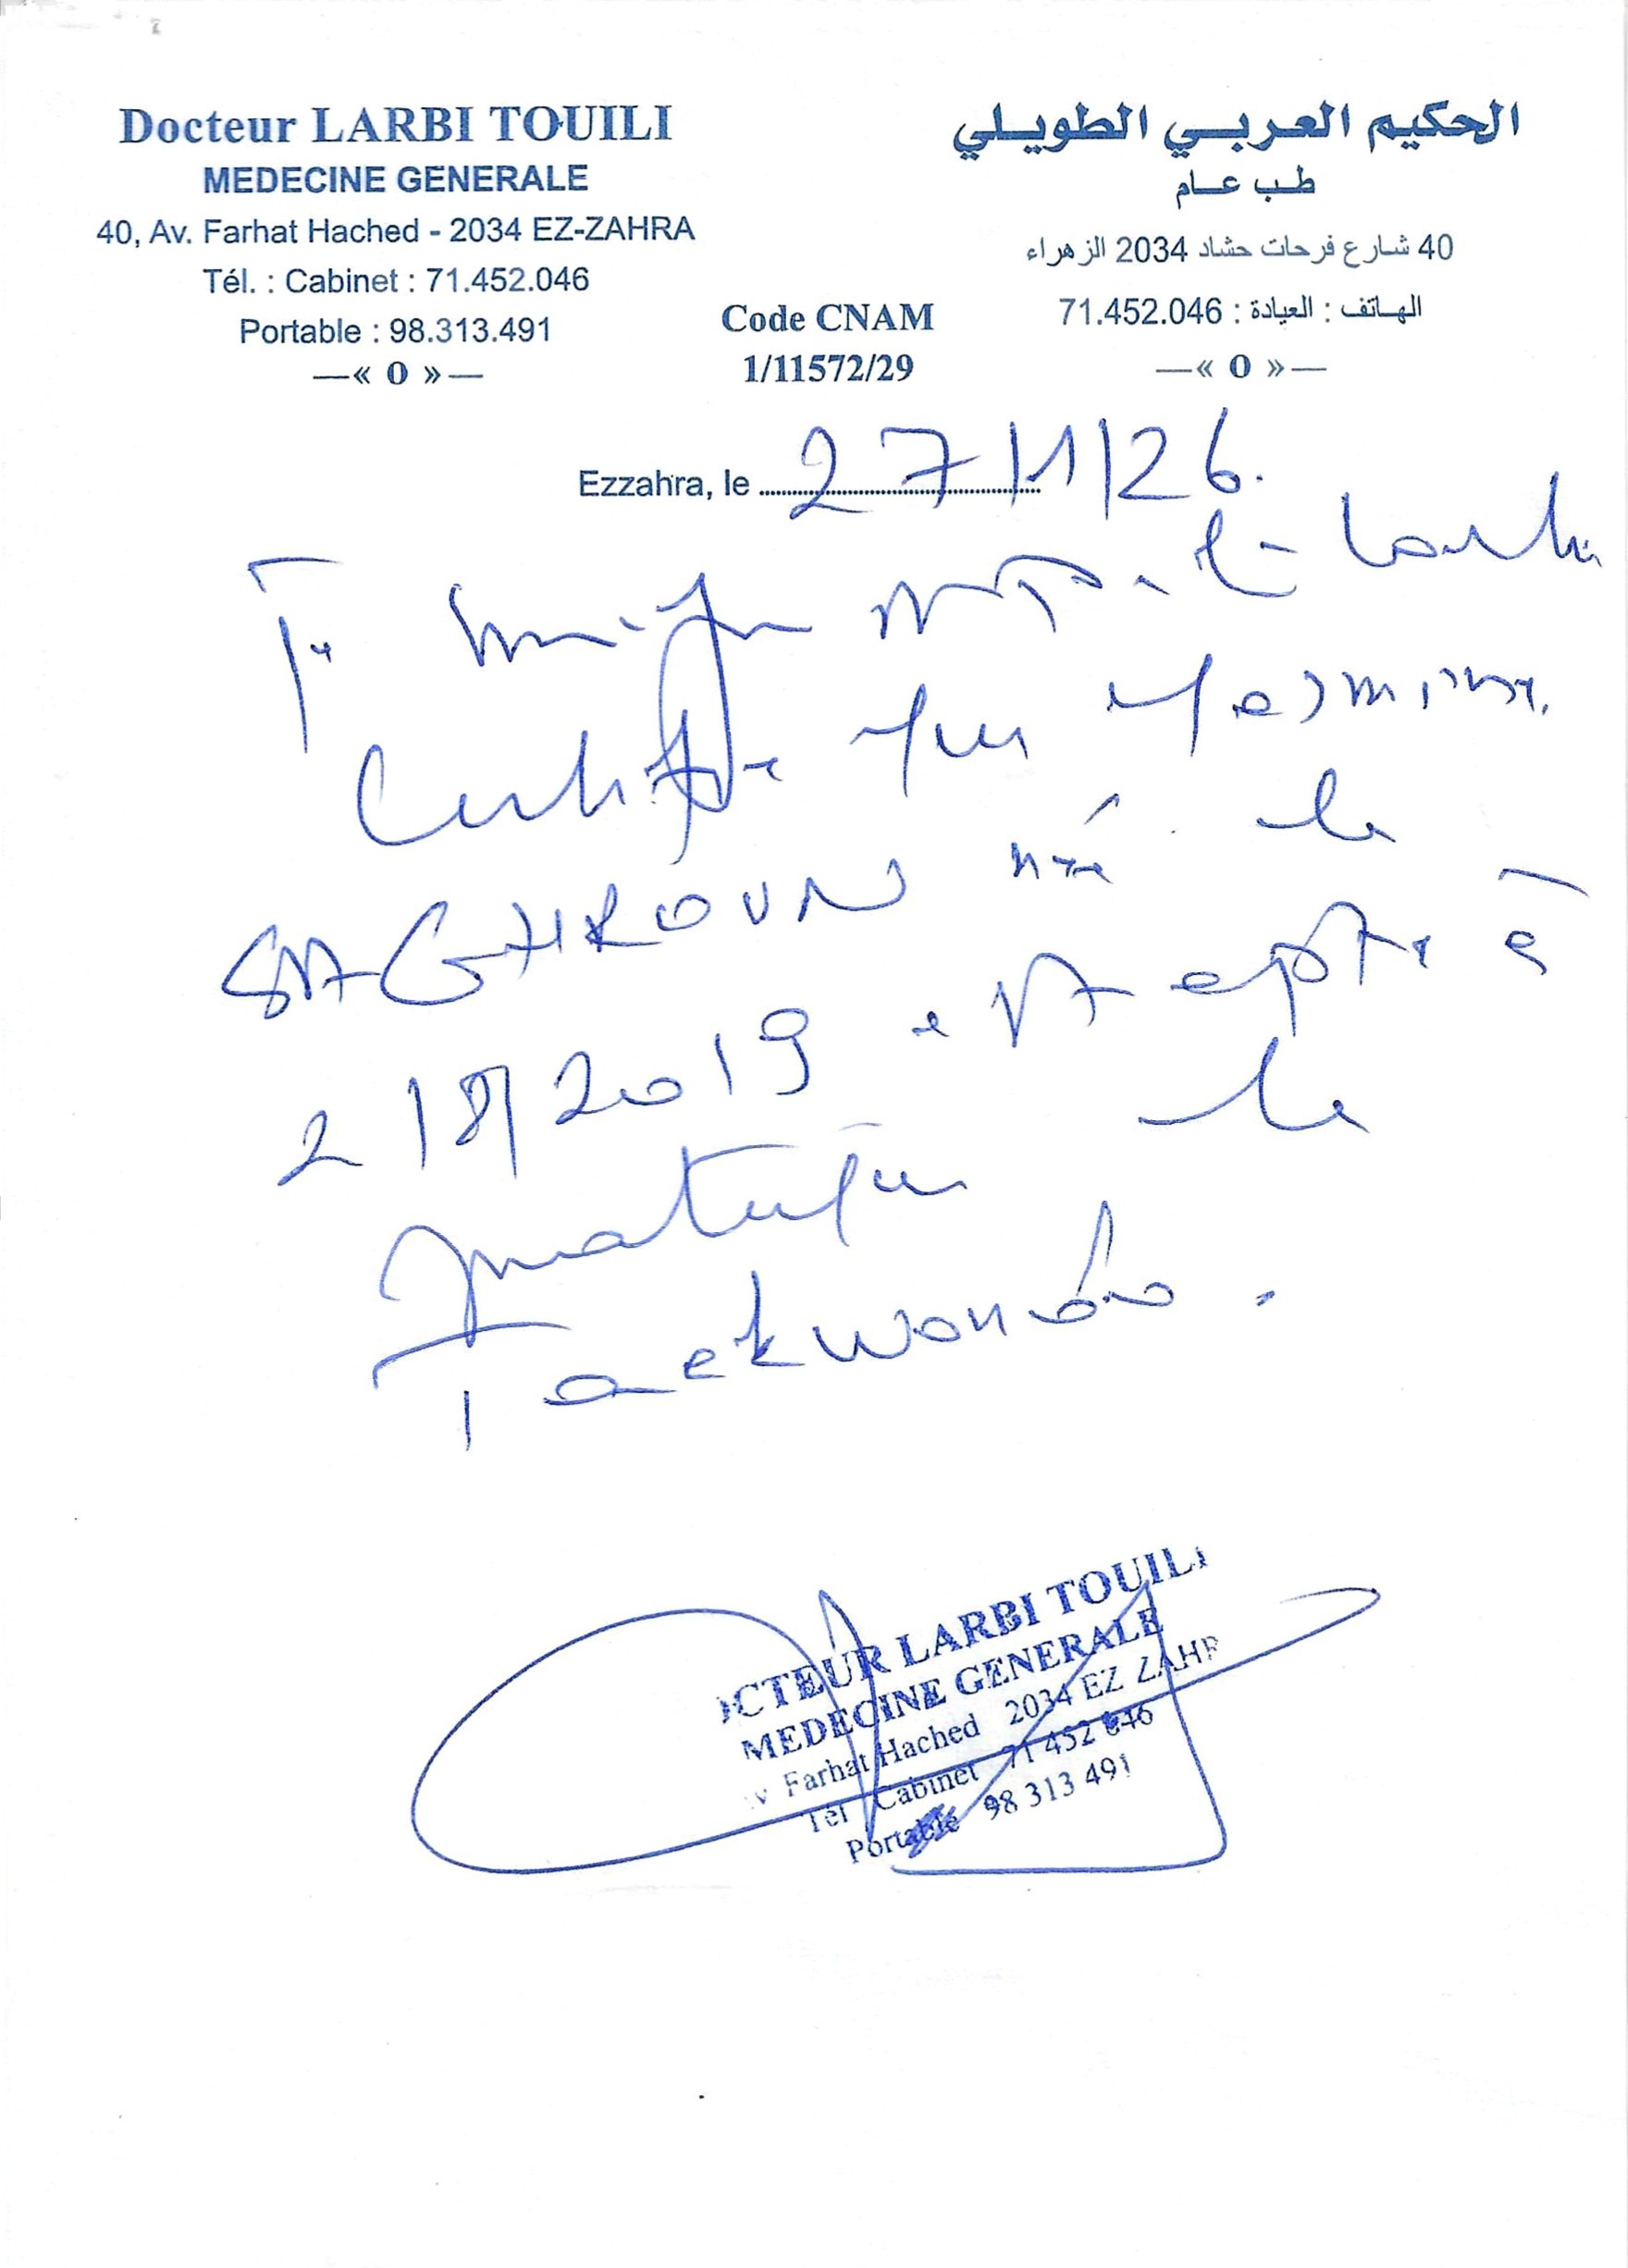 Docteur LARBI TOUILI
MEDECINE GENERALE
40, Av. Farhat Hached - 2034 EZ-ZAHRA
Tél. : Cabinet : 71.452.046
Portable : 98.313.491
—« O »—
الحكيم العربي الطويلي
طب عام
40 شارع فرحات حشاد 2034 الزهراء
الهاتف : العيادة : 71.452.046
—« O »—
Code CNAM
1/11572/29
Ezzahra, le 27/1/26.
Je
certifie que
SAGHROUN né le
2/8/2019 est apte à
pratiquer le
Taekwondo.
CTEUR LARBI TOUILI
MEDECINE GENERALE
v Farhat Hached 2034 EZ ZAHR
Tél Cabinet 71 452 046
Portable 98 313 491